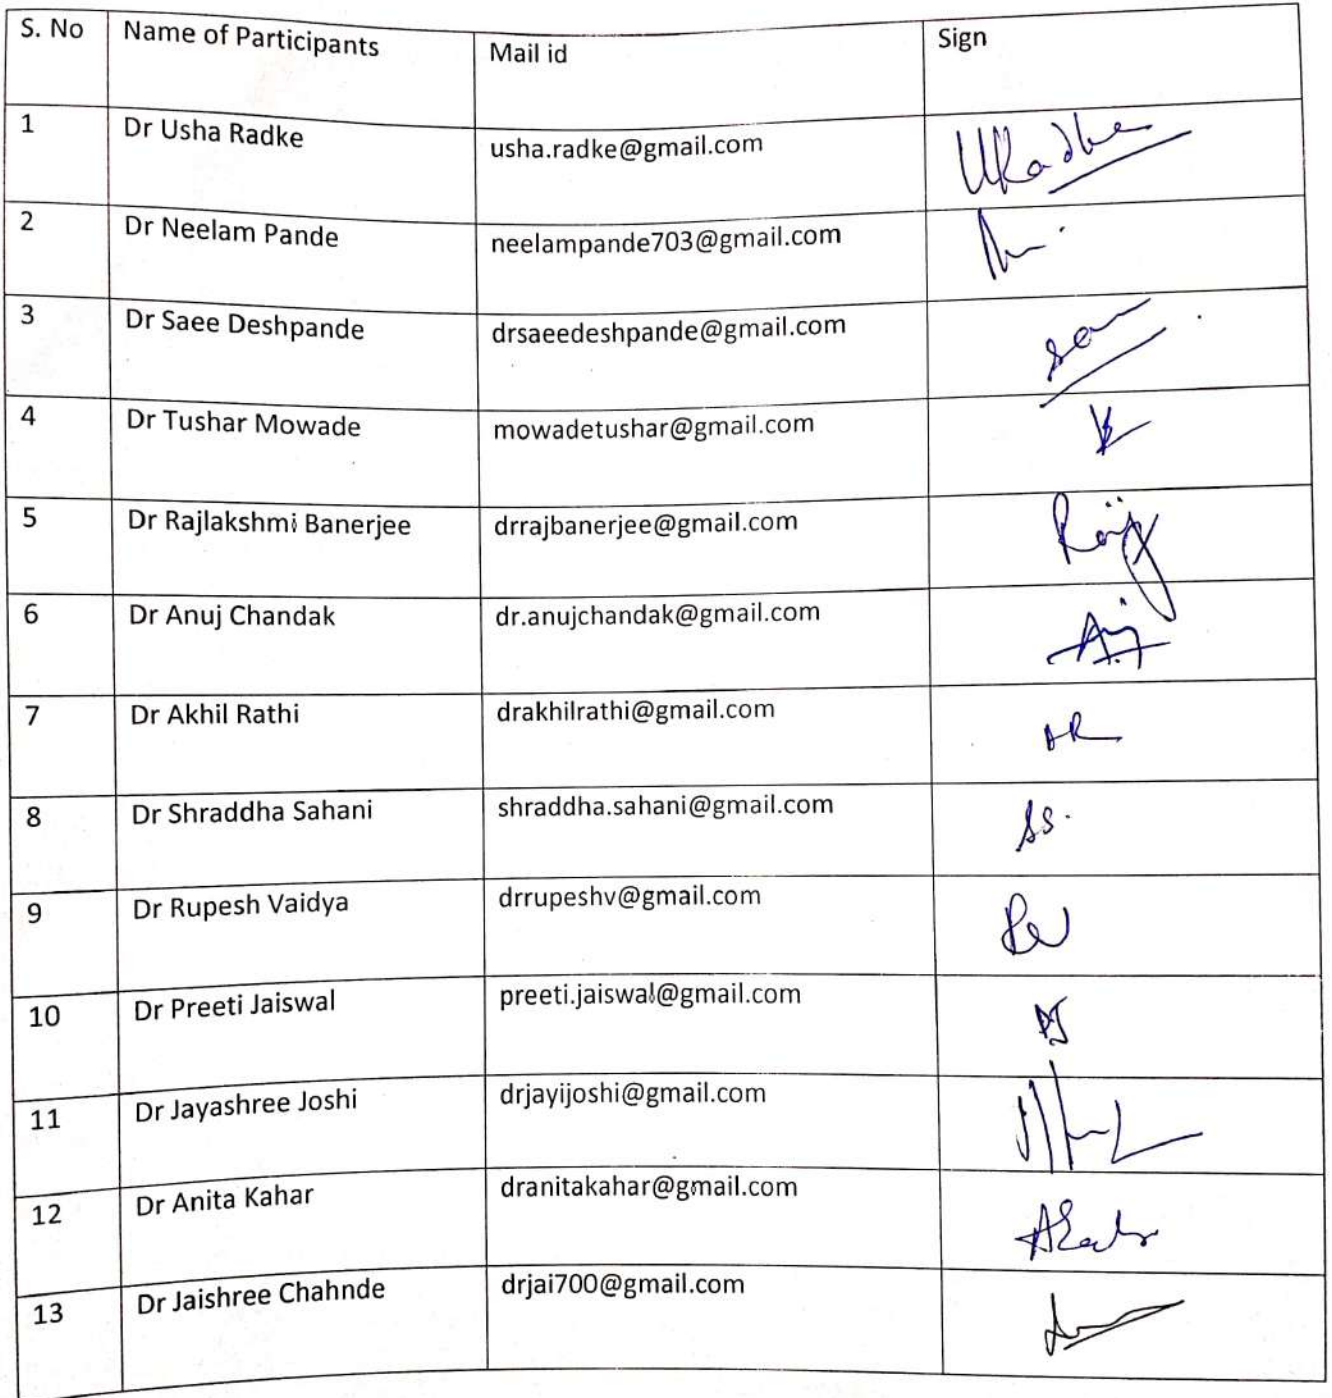 S. No Name of Participants Mail id Sign
1 Dr Usha Radke usha.radke@gmail.com URadke
2 Dr Neelam Pande neelampande703@gmail.com
3 Dr Saee Deshpande drsaeedeshpande@gmail.com
4 Dr Tushar Mowade mowadetushar@gmail.com
5 Dr Rajlakshmi Banerjee drrajbanerjee@gmail.com
6 Dr Anuj Chandak dr.anujchandak@gmail.com
7 Dr Akhil Rathi drakhilrathi@gmail.com AR
8 Dr Shraddha Sahani shraddha.sahani@gmail.com SS.
9 Dr Rupesh Vaidya drrupeshv@gmail.com
10 Dr Preeti Jaiswal preeti.jaiswal@gmail.com PJ
11 Dr Jayashree Joshi drjayijoshi@gmail.com
12 Dr Anita Kahar dranitakahar@gmail.com
13 Dr Jaishree Chahnde drjai700@gmail.com